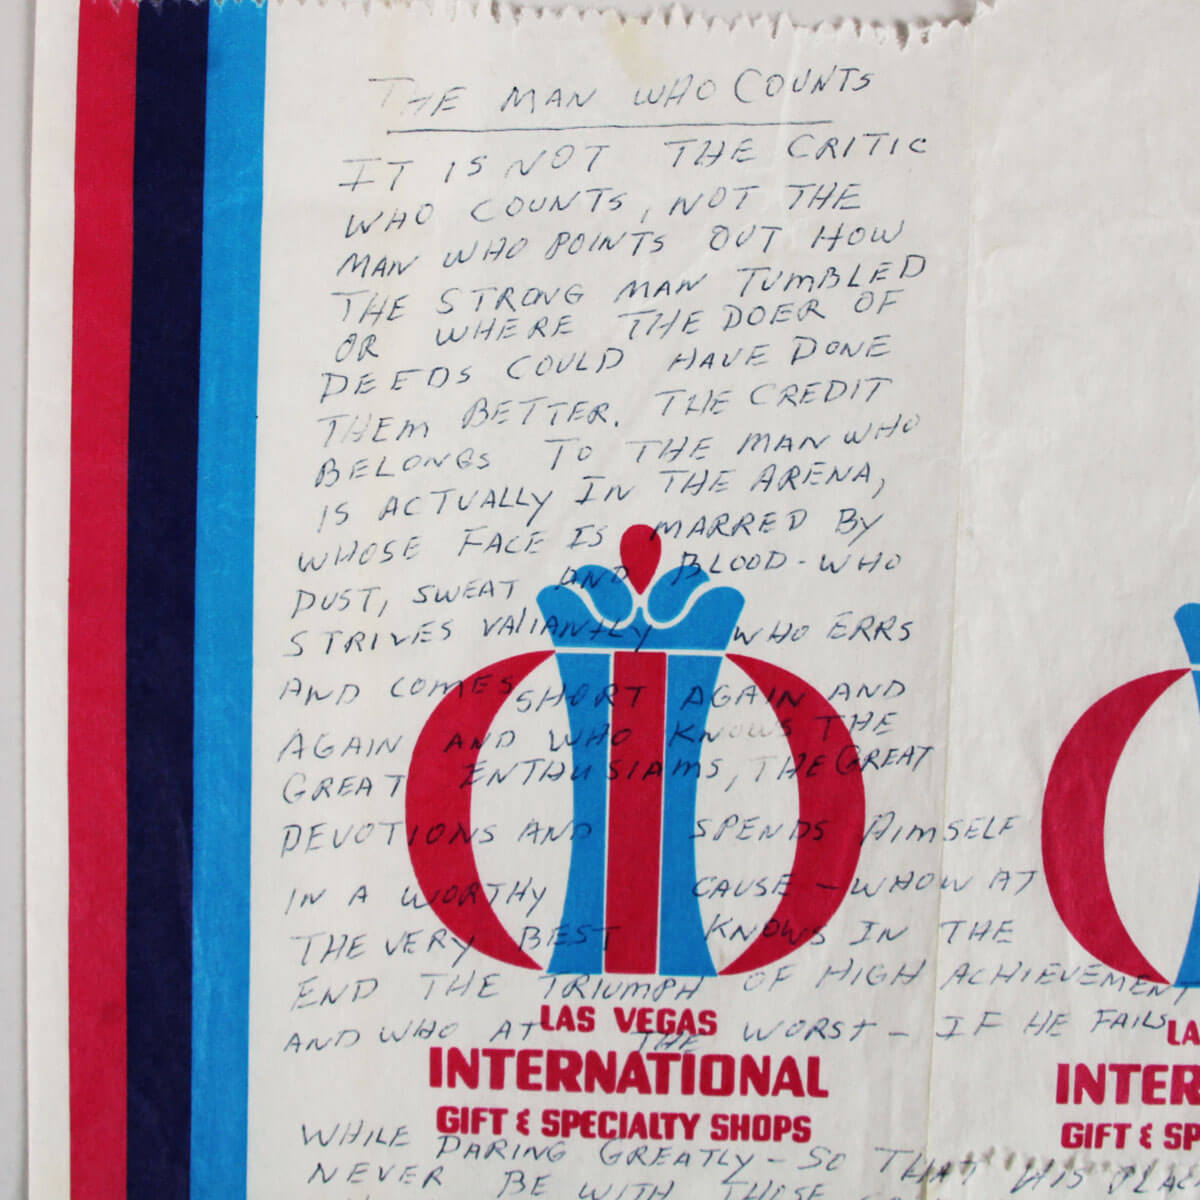 THE MAN WHO COUNTS
IT IS NOT THE CRITIC
WHO COUNTS, NOT THE
MAN WHO POINTS OUT HOW
THE STRONG MAN TUMBLED
OR WHERE THE DOER OF
DEEDS COULD HAVE DONE
THEM BETTER. THE CREDIT
BELONGS TO THE MAN WHO
IS ACTUALLY IN THE ARENA,
WHOSE FACE IS MARRED BY
DUST, SWEAT AND BLOOD - WHO
STRIVES VALIANTLY WHO ERRS
AND COMES SHORT AGAIN AND
AGAIN AND WHO KNOWS THE
GREAT ENTHUSIAMS, THE GREAT
DEVOTIONS AND SPENDS HIMSELF
IN A WORTHY CAUSE - WHOW AT
THE VERY BEST KNOWS IN THE
END THE TRIUMPH OF HIGH ACHIEVEMENT
AND WHO AT THE WORST - IF HE FAILS
LAS VEGAS
INTERNATIONAL
GIFT & SPECIALTY SHOPS
LA
INTER
GIFT & SP
WHILE DARING GREATLY - SO THAT HIS PLAC
NEVER BE WITH THOSE